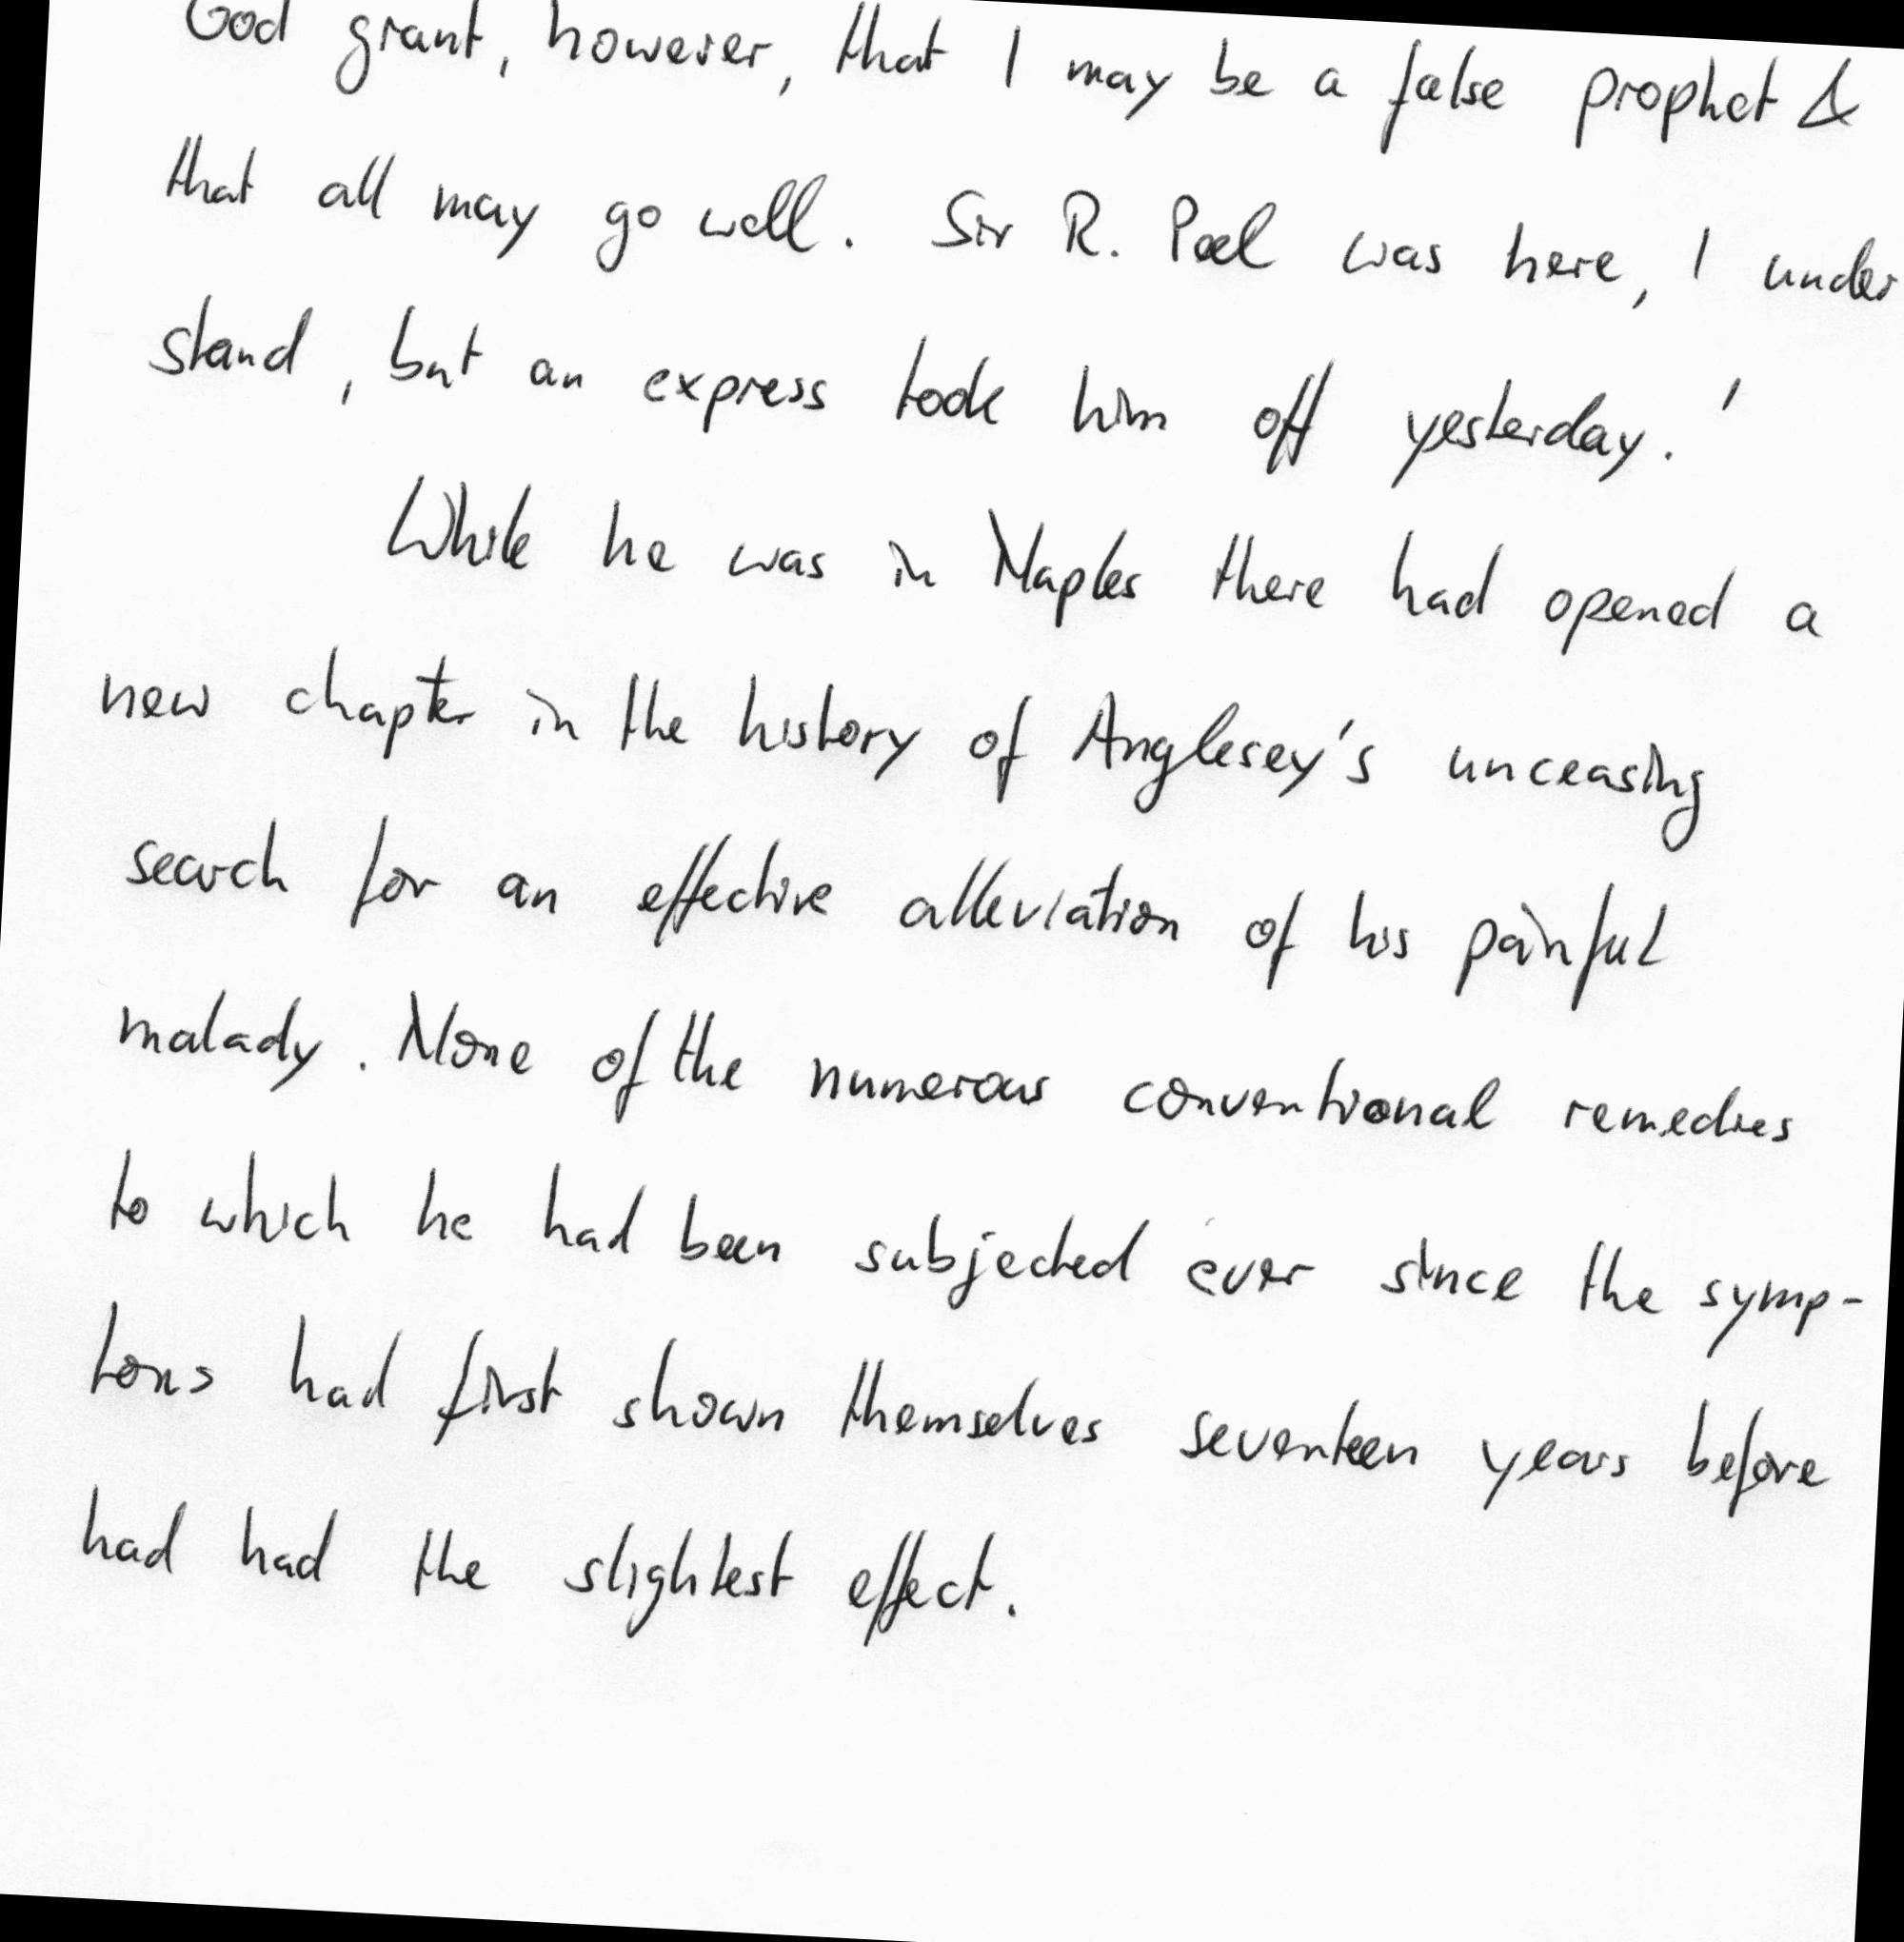 God grant, however, that I may be a false prophet &
that all may go well. Sir R. Peel was here, I under
stand, but an express took him off yesterday.'
While he was in Naples there had opened a
new chapter in the history of Anglesey's unceasing
search for an effective alleviation of his painful
malady. None of the numerous conventional remedies
to which he had been subjected ever since the symp-
toms had first shown themselves seventeen years before
had had the slightest effect.